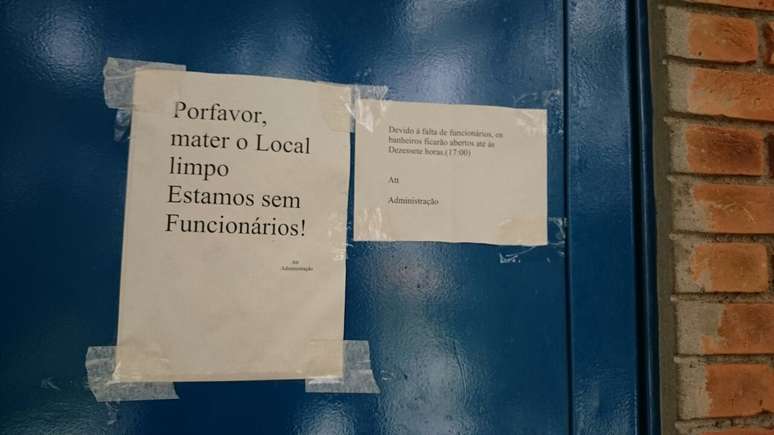 Porfavor,
mater o Local
limpo
Estamos sem
Funcionários!
Att
Administração
Devido à falta de funcionários, os
banheiros ficarão abertos até ás
Dezessete horas.(17:00)
Att
Administração